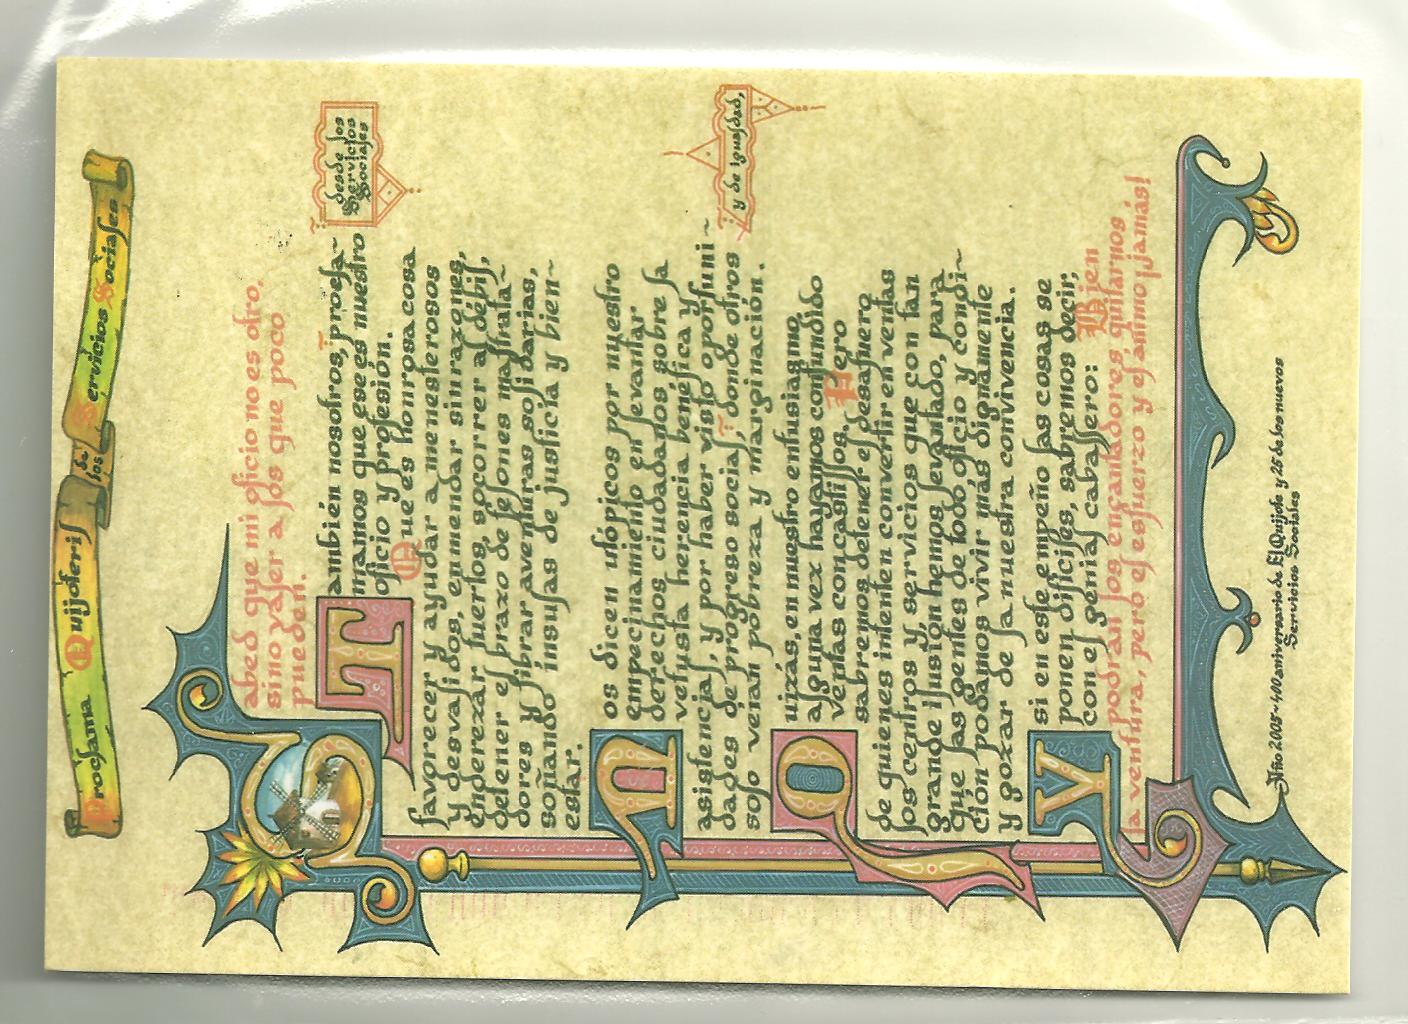 Proclama Quijoteril de los Servicios Sociales
Sabed que mi oficio no es otro,
sino valer a los que poco
pueden.
También nosotros, procla~
desde los
Servicios
Sociales
mamos que ese es nuestro
oficio y profesión.
Que es honrosa cosa
favorecer y ayudar a menesterosos
y desvalidos, enmendar sinrazones,
enderezar tuertos, socorrer al débil,
detener el brazo de felones maltrata~
dores y librar aventuras solidarias,
soñando insulas de justicia y bien~
estar.
Nos dicen utópicos por nuestro
empecinamiento en levantar
derechos ciudadanos sobre la
vetusta herencia benéfica y
asistencial, y por haber visto oportuni~
dades de progreso social, donde otros
y de igualdad,
solo veían pobreza y marginación.
Quizás, en nuestro entusiasmo,
alguna vez hayamos confundido
ventas con castillos. Pero
sabremos detener el desafuero
de quienes intenten convertir en ventas
los centros y servicios que con tan
grande ilusión hemos levantado, para
que las gentes de todo oficio y condi~
ción podamos vivir más dignamente
y gozar de la nuestra convivencia.
Y si en este empeño las cosas se
ponen difíciles, sabremos decir,
con el genial caballero: Bien
podrán los encantadores quitarnos
la ventura, pero el esfuerzo y el ánimo ¡jamás!
Año 2005~400 aniversario de El Quijote y 25 de los nuevos
Servicios Sociales